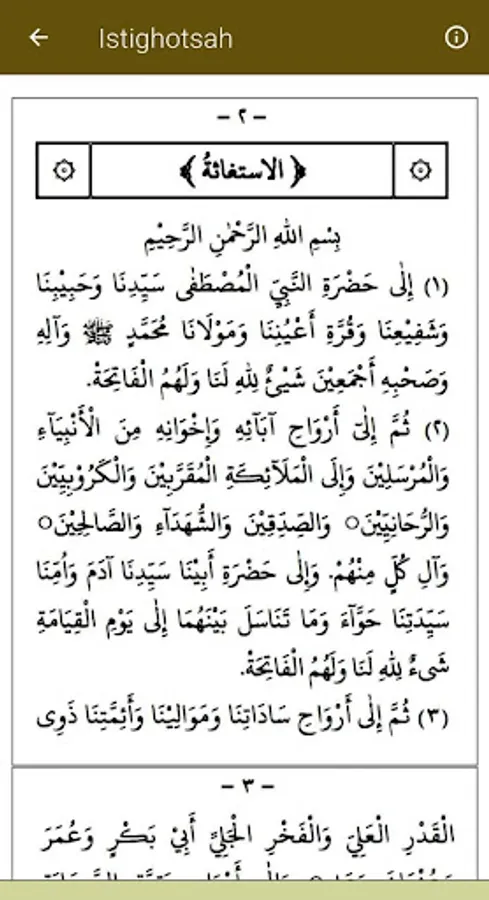 Istighotsah
- ٢ -
﴿ الاستغاثةُ ﴾
بِسْمِ اللهِ الرَّحْمٰنِ الرَّحِيْمِ
(١) إِلٰى حَضْرَةِ النَّبِيِّ الْمُصْطَفٰى سَيِّدِنَا وَحَبِيْبِنَا
وَشَفِيْعِنَا وَقُرَّةِ أَعْيُنِنَا وَمَوْلَانَا مُحَمَّدٍ ﷺ وَآلِهِ
وَصَحْبِهِ أَجْمَعِيْنَ شَيْئٌ لِلّٰهِ لَنَا وَلَهُمُ الْفَاتِحَةْ.
(٢) ثُمَّ إِلٰىٓ أَرْوَاحِ آبَآئِهِ وَإِخْوَانِهِ مِنَ الْأَنْبِيَآءِ
وَالْمُرْسَلِيْنَ وَإِلَى الْمَلَآئِكَةِ الْمُقَرَّبِيْنَ وَالْكَرُوْبِيِّيْنَ
وَالرُّحَانِيِّيْنَ○ وَالصِّدِّقِيْنَ وَالشُّهَدَآءِ وَالصَّالِحِيْنَ○
وَآلِ كُلٍّ مِنْهُمْ. وَإِلٰى حَضْرَةِ أَبِيْنَا سَيِّدِنَا آدَمَ وَأُمِّنَا
سَيِّدَتِنَا حَوَّآءَ وَمَا تَنَاسَلَ بَيْنَهُمَا إِلٰى يَوْمِ الْقِيَامَةِ
شَىءٌ لِلّٰهِ لَنَا وَلَهُمُ الْفَاتِحَةْ.
(٣) ثُمَّ إِلٰى أَرْوَاحِ سَادَاتِنَا وَمَوَالِيْنَا وَأَئِمَّتِنَا ذَوِى
- ٣ -
الْقَدْرِ الْعَلِيِّ وَالْفَخْرِ الْجَلِيِّ أَبِيْ بَكْرٍ وَعُمَرَ